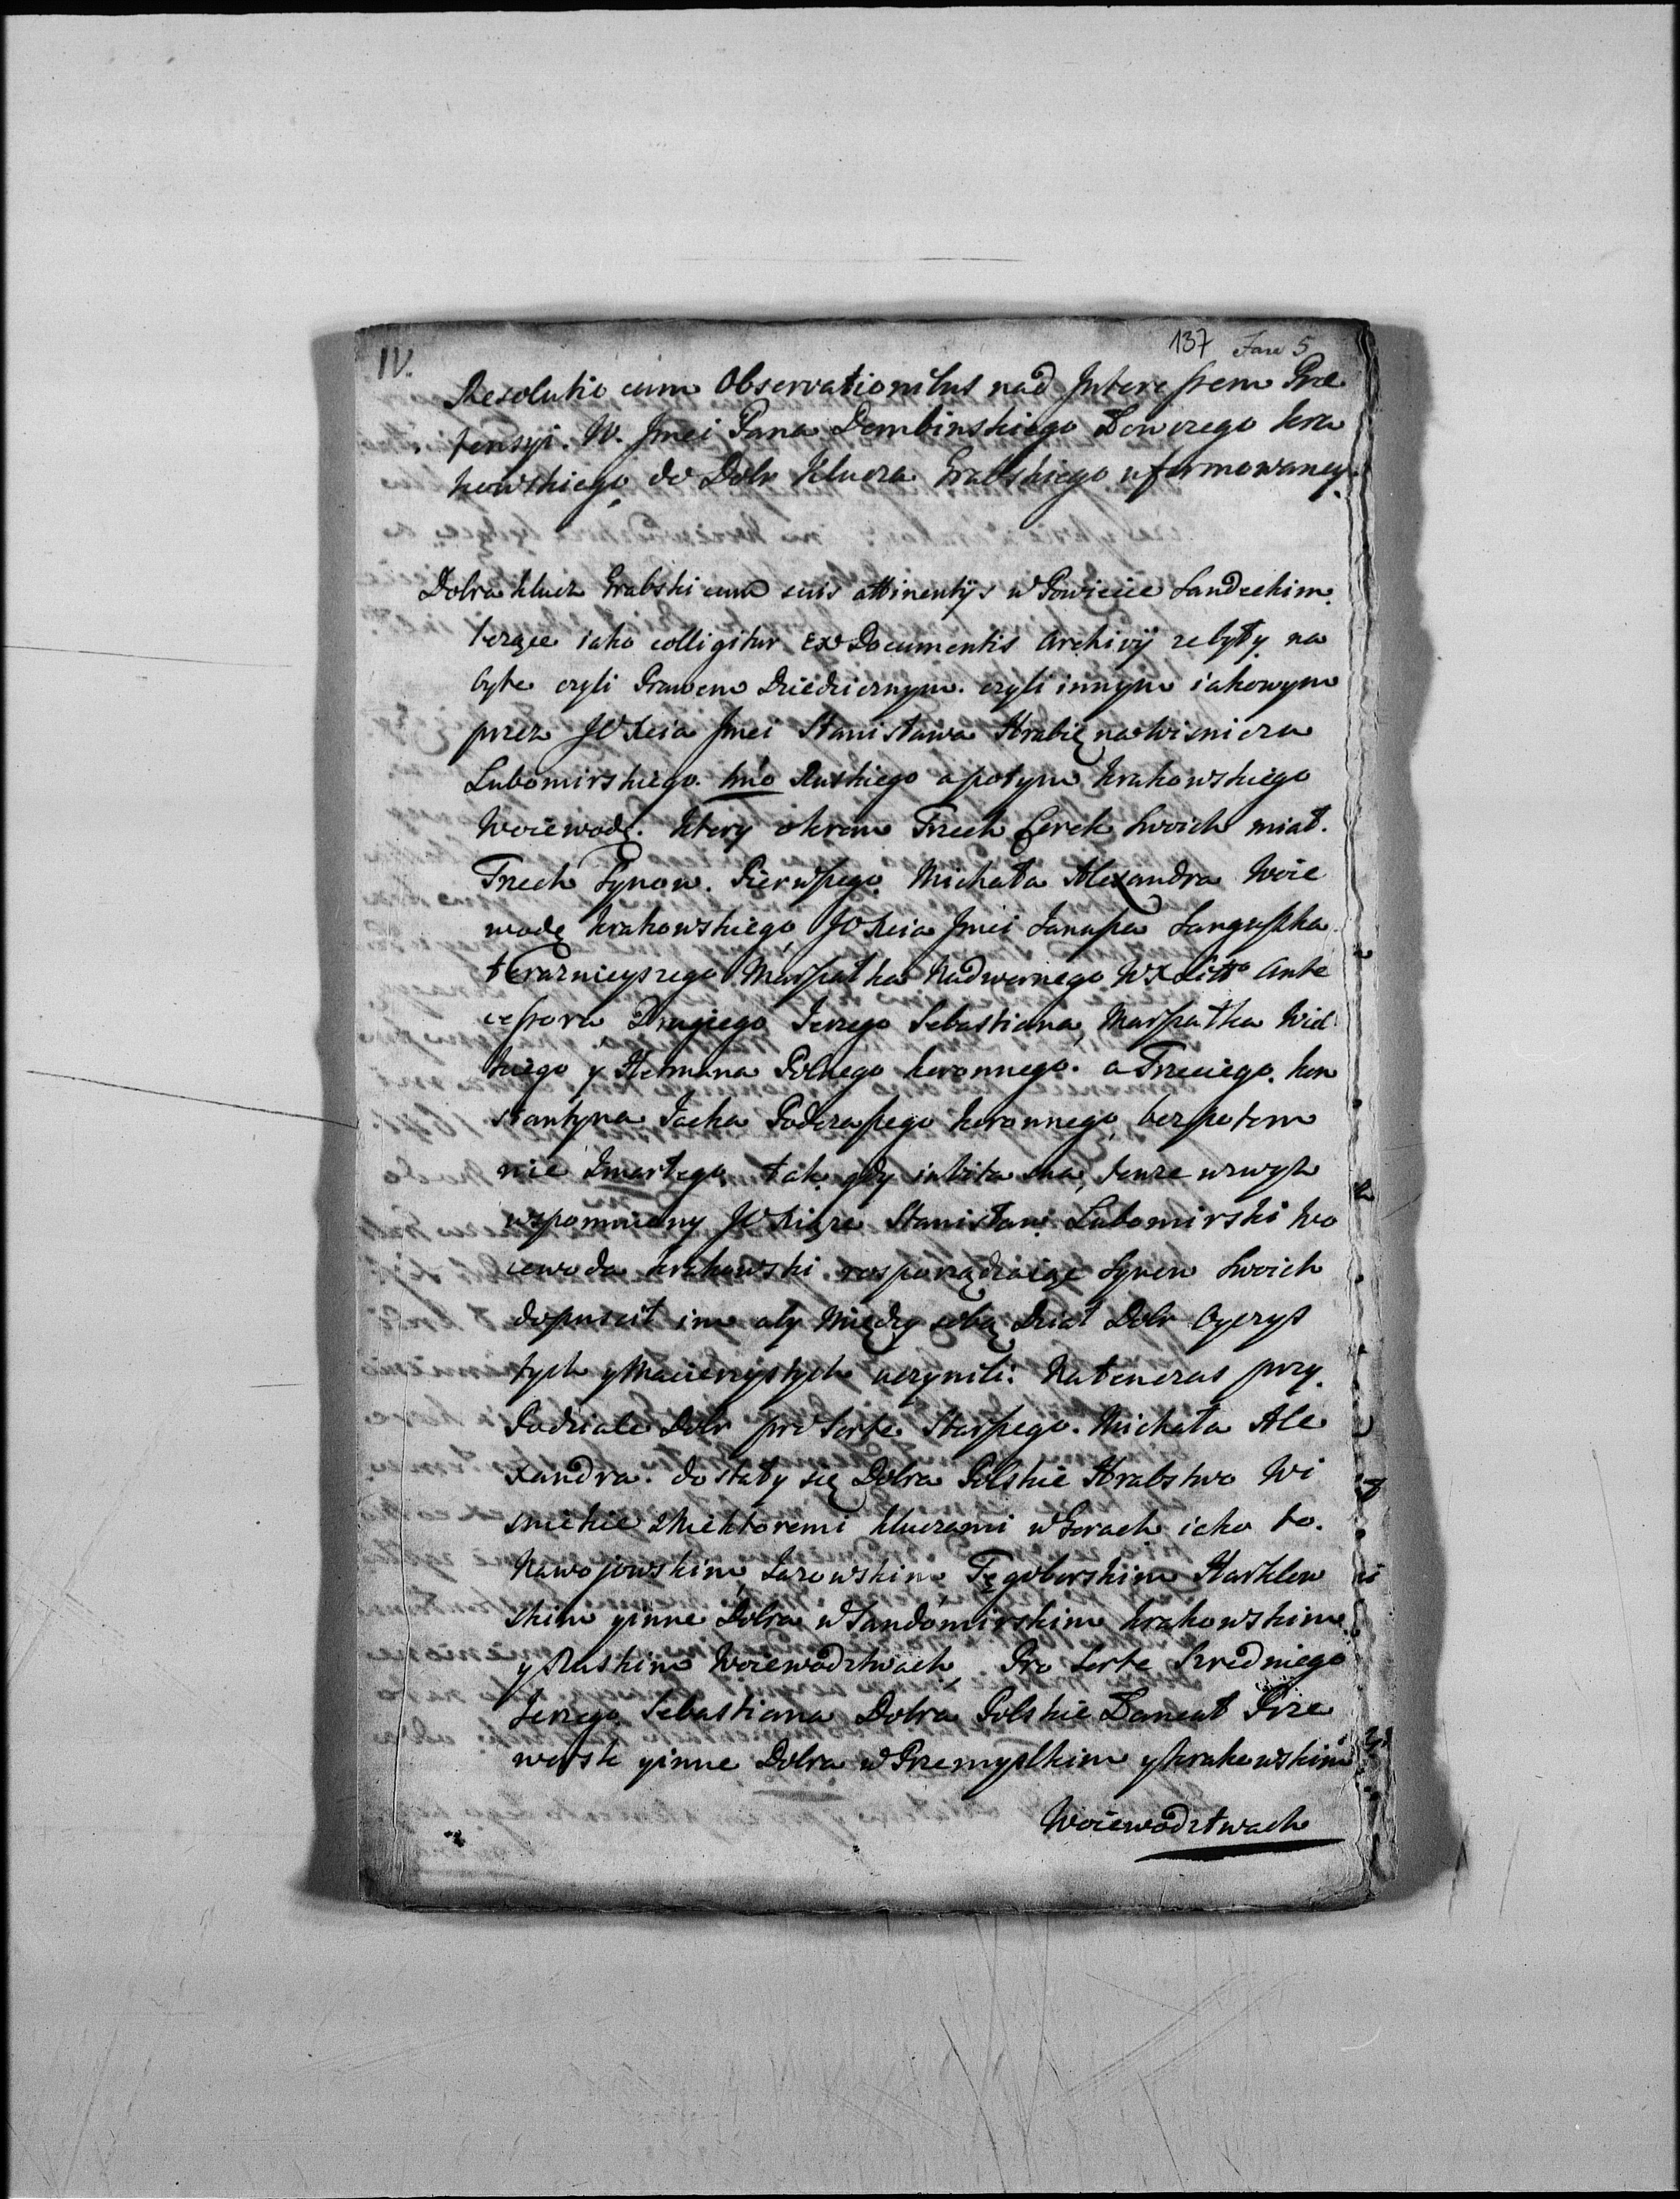 IV.
137 Fasc 5
Resolutio cum Observationibus nad Interessem Pre
tensyi. W. Jmci Pana Dembinskiego Łowczego kra
kowskiego, do Dobr Klucza Grabskiego uformowaney.
Dobra klucz Grabski cum suis attinentijs w Powiecie Sandeckim.
lezące iako colligitur ex Documentis Archivij zebyły na
byte czyli Prawem Dziedzicznym. czyli innym iakowym
przez JO Xcia Jmci Stanisława Hrabię na Wisniczu
Lubomirskiego. Imo Ruskiego apotym krakowskiego
Woiewodę. ktory okrom Trzech Corek Swoich miał.
Trzech Synow. Pierwszego. Michała Alexandra Woie
wodę krakowskiego, JO Xcia Jmci Janusza Sanguszka.
teraznieyszego Marszałka Nadwornego WX Litto Ante
cessora Drugiego Jerzego Sebastiana, Marszałka Wiel
kiego y Hetmana Polnego koronnego. a Trzeciego. kon
stantyna Jacka Podczaszego koronnego, bez potom
nie Zmarłego, tak gdy inbita sua, tenze wzwysz
wspomniony JO Xiąze Stanisław Lubomirski Wo
iewoda krakowski rosporządzaiąc Synow Swoich
dopuscił im aby Między sobą Dział Dobr Oyczys
tych y Macierzystych uczynili: Natenczas przy.
Podziale Dobr pro Sorte Starszego. Michała Ale
xandra. dostały się Dobra Polskie Hrabstwo Wi
snickie z Niektoremi kluczami w Gorach iako to.
Nawojowskim, Jazowskim Tęgoborskim Harklow
skim yinne Dobra w Sandomirskim krakowskim
y Ruskim Woiewodztwach, Pro Sorte Srzedniego
Jerzego Sebastiana Dobra Polskie Łancut Prze
worsk yinne Dobra w Przemyslkim y krakowskim
Woiewodztwach